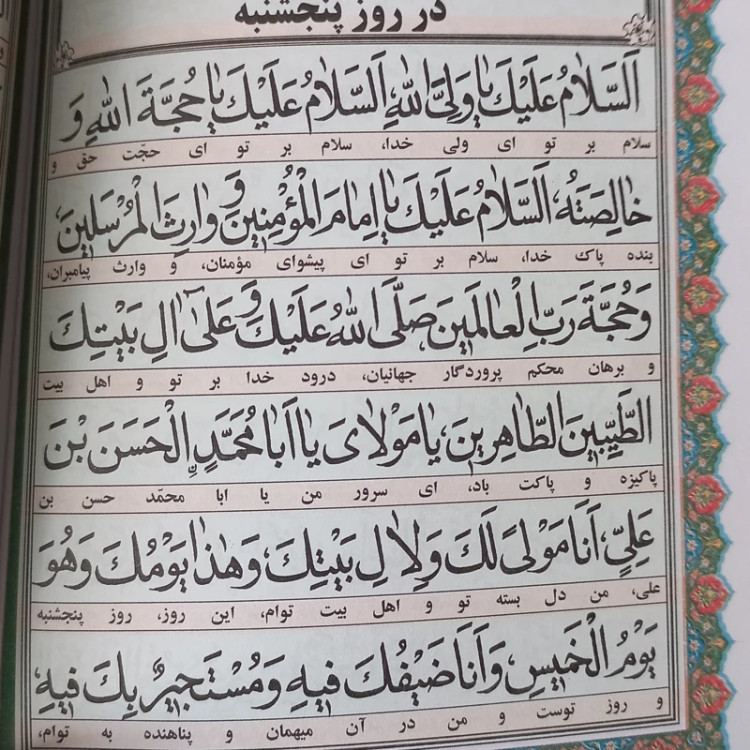 در روز پنجشنبه
اَلسَّلامُ عَلَيْكَ يا وَلِىَّ اللّٰهِ، اَلسَّلامُ عَلَيْكَ يا حُجَّةَ اللّٰهِ وَ
سلام بر تو ای ولی خدا، سلام بر تو ای حجّت حق و
خالِصَتَهُ، اَلسَّلامُ عَلَيْكَ يا اِمامَ الْمُؤْمِنينَ وَ وارِثَ الْمُرْسَلينَ،
بنده پاک خدا، سلام بر تو ای پیشوای مؤمنان، و وارث پیامبران،
وَ حُجَّةَ رَبِّ الْعالَمينَ، صَلَّى اللّٰهُ عَلَيْكَ وَ عَلىٰ آلِ بَيْتِكَ
و برهان محکم پروردگار جهانیان، درود خدا بر تو و اهل بیت
الطَّيِّبينَ الطّاهِرينَ، يا مَوْلاىَ يا اَبا مُحَمَّدٍ الْحَسَنَ بْنَ
پاکیزه و پاکت باد، ای سرور من یا ابا محمّد حسن بن
عَلِىٍّ، اَنَا مَوْلىً لَكَ وَ لِاٰلِ بَيْتِكَ، وَ هٰذا يَوْمُكَ وَ هُوَ
علی، من دل بسته تو و اهل بیت توام، این روز، روز پنجشنبه
يَوْمُ الْخَميسِ، وَ اَنَا ضَيْفُكَ فيهِ وَ مُسْتَجيرٌ بِكَ فيهِ،
و روز توست و من در آن میهمان و پناهنده به توام،